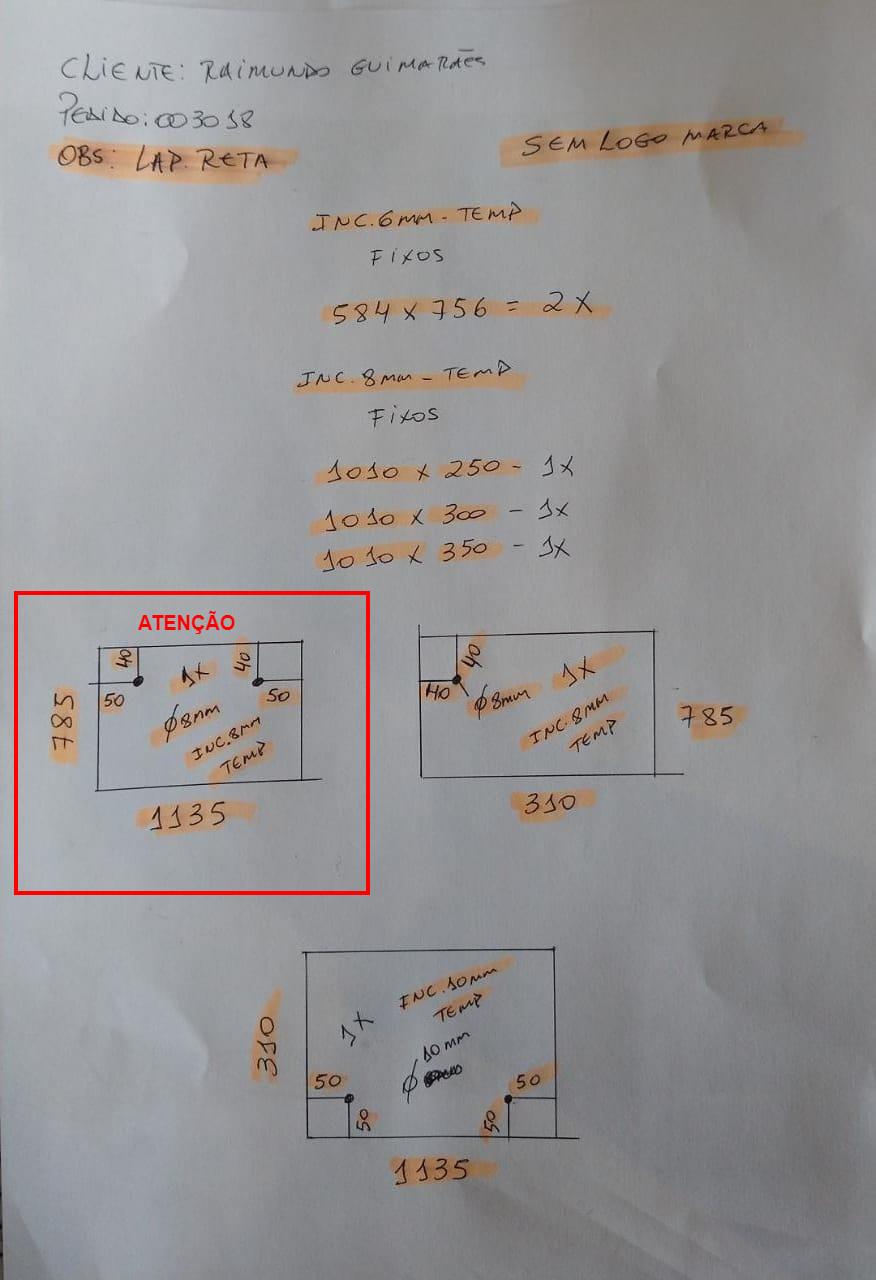 CLIENTE: RAIMUNDO GUIMARÃES
PEDIDO: 003018
OBS: LAP. RETA
SEM LOGO MARCA
INC. 6mm - TEMP
FIXOS
584 x 756 = 2x
INC. 8mm - TEMP
FIXOS
1010 x 250 - 1x
1010 x 300 - 1x
1010 x 350 - 1x
ATENÇÃO
40
40
1x
50
50
Ø8mm
INC. 8mm
TEMP
785
1135
40
40
1x
Ø8mm
INC. 8mm
TEMP
785
310
INC. 10mm
TEMP
1x
10mm
Ø
310
50
50
50
50
1135